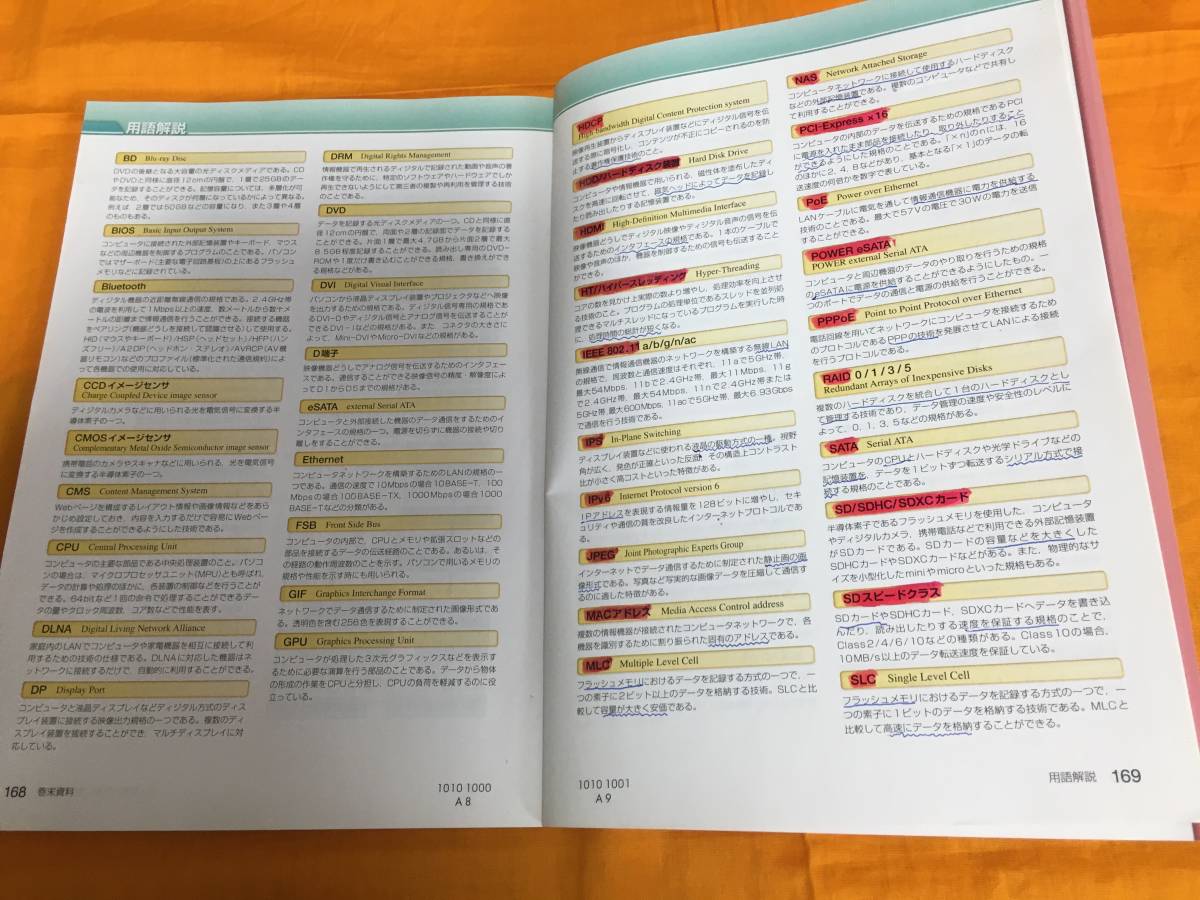 用語解説
BD Blu-ray Disc
DVDの後継となる大容量の光ディスクメディアである。CD
やDVDと同様に直径12cmの円盤で、1層で25GBのデー
タを記録することができる。記憶容量については、多層化が可
能なため、そのディスクが何層になっているかによって異なる。
例えば、2層では50GBなどの容量になり、また3層や4層
のものもある。
BIOS Basic Input Output System
コンピュータに接続された外部記憶装置やキーボード、マウス
などの周辺機器を制御するプログラムのことである。パソコン
ではマザーボード(主要な電子回路基板)の上にあるフラッシュ
メモリなどに記録されている。
Bluetooth
ディジタル機器の近距離無線通信の規格である。2.4GHz帯
の電波を利用して1Mbps以上の速度、数メートルから数十メ
ートルの距離まで情報通信を行うことができる。接続する機器
をペアリング(機器どうしを接続して認識させる)して使用する。
HID(マウスやキーボード)/HSP(ヘッドセット)/HFP(ハン
ズフリー)/A2DP(ヘッドホン・ステレオ)/AVRCP(AV機
器リモコン)などのプロファイル(標準化された通信規約)によ
って各機器での使用に対応している。
CCDイメージセンサ
Charge Coupled Device image sensor
ディジタルカメラなどに用いられる光を電気信号に変換する半
導体素子の一つ。
CMOSイメージセンサ
Complementary Metal Oxide Semiconductor image sensor
携帯電話のカメラやスキャナなどに用いられる、光を電気信号
に変換する半導体素子の一つ。
CMS Content Management System
Webページを構成するレイアウト情報や画像情報などをあら
かじめ設定しておき、内容を入力するだけで容易にWebペー
ジを作成することができるようにした技術である。
CPU Central Processing Unit
コンピュータの主要な部品である中央処理装置のこと。パソコ
ンの場合は、マイクロプロセッサユニット(MPU)とも呼ばれ、
データの計算や処理のほかに、各装置の制御などを行うことが
できる。64bitなど1回の命令で処理することができるデー
タの量やクロック周波数、コア数などで性能を表す。
DLNA Digital Living Network Alliance
家庭内のLANでコンピュータや家電機器を相互に接続して利
用するための技術の仕様である。DLNAに対応した機器はネ
ットワークに接続するだけで、自動的に利用することができる。
DP Display Port
コンピュータと液晶ディスプレイなどディジタル方式のディス
プレイ装置に接続する映像出力規格の一つである。複数のディ
スプレイ装置を接続することができ、マルチディスプレイに対
応している。
DRM Digital Rights Management
情報機器で再生されるディジタルで記録された動画や音声の著
作権を守るために、特定のソフトウェアやハードウェアでしか
再生できないようにして第三者の複製や再利用を管理する技術
のことである。
DVD
データを記録する光ディスクメディアの一つ。CDと同様に直
径12cmの円盤で、両面や2層の記録面でデータを記録する
ことができる。片面1層で最大4.7GBから片面2層で最大
8.5GB程度記録することができる。読み出し専用のDVD-
ROMや1度だけ書き込むことができる規格、書き換えができ
る規格などがある。
DVI Digital Visual Interface
パソコンから液晶ディスプレイ装置やプロジェクタなどへ映像
を出力するための規格である。ディジタル信号専用の規格であ
るDVI-Dやディジタル信号とアナログ信号を伝送することが
できるDVI-Iなどの規格がある。また、コネクタの大きさに
よって、Mini-DVIやMicro-DVIなどの規格がある。
D端子
映像機器どうしでアナログ信号を伝送するためのインタフェー
スである。通信することができる映像信号の精度・解像度によ
ってD1からD5までの規格がある。
eSATA external Serial ATA
コンピュータと外部接続した機器のデータ通信をするためのイ
ンタフェースの規格の一つ。電源を切らずに機器の接続や切り
離しをすることができる。
Ethernet
コンピュータネットワークを構築するためのLANの規格の一
つである。通信の速度で10Mbpsの場合10BASE-T、100
Mbpsの場合100BASE-TX、1000Mbpsの場合1000
BASE-Tなどの分類がある。
FSB Front Side Bus
コンピュータの内部で、CPUとメモリや拡張スロットなどの
部品を接続するデータの伝送経路のことである。あるいは、そ
の経路の動作周波数のことを示す。パソコンで用いるメモリの
規格や性能を示す時にも用いられる。
GIF Graphics Interchange Format
ネットワークでデータ通信するために制定された画像形式であ
る。透明色を含む256色を表現することができる。
GPU Graphics Processing Unit
コンピュータが処理した3次元グラフィックスなどを表示す
るために必要な演算を行う部品のことである。データから物体
の形成の作業をCPUと分担し、CPUの負荷を軽減するのに役
立っている。
168 巻末資料
1010 1000
A8
HDCP
High-bandwidth Digital Content Protection system
映像再生装置からディスプレイ装置などにディジタル信号を伝
送する間に暗号化し、コンテンツが不正にコピーされるのを防
止する著作権保護技術のこと。
HDD/ハードディスク装置 Hard Disk Drive
コンピュータや情報機器で用いられる、磁性体を塗布したディ
スクを高速に回転させて、磁気ヘッドによってデータを記録し
たり読み出したりする記憶装置である。
HDMI High-Definition Multimedia Interface
映像機器どうしでディジタル映像やディジタル音声の信号を伝
送するためのインタフェースの規格である。1本のケーブルで
映像や音声のほか、機器を制御するための信号も伝送すること
ができる。
HT/ハイパースレッディング Hyper-Threading
コアの数を見かけ上実際の数より増やし、処理効率を向上させ
る技術のこと。プログラムの処理単位であるスレッドを並列処
理できるマルチスレッドになっているプログラムを実行した時
に、処理時間の総計が短くなる。
IEEE 802.11a/b/g/n/ac
無線通信で情報通信機器のネットワークを構築する無線LAN
の規格で、周波数と通信速度はそれぞれ、11aで5GHz帯、
最大54Mbps、11bで2.4GHz帯、最大11Mbps、11g
で2.4GHz帯、最大54Mbps、11nで2.4GHz帯または
5GHz帯、最大600Mbps、11acで5GHz帯、最大6.93Gbps
で通信を行う技術である。
IPS In-Plane Switching
ディスプレイ装置などに使われる液晶の駆動方式の一種。視野
角が広く、発色が正確といった反面、その構造上コントラスト
比が小さく高コストといった特徴がある。
IPv6 Internet Protocol version 6
IPアドレスを表現する情報量を128ビットに増やし、セキ
ュリティや通信の質を改良したインターネットプロトコルであ
る。
JPEG Joint Photographic Experts Group
インターネットでデータ通信するために制定された静止画の画
像形式である。写真など写実的な画像データを圧縮して通信す
るのに適した特徴がある。
MACアドレス Media Access Control address
複数の情報機器が接続されたコンピュータネットワークで、各
機器を識別するために割り振られた固有のアドレスである。
MLC Multiple Level Cell
フラッシュメモリにおけるデータを記録する方式の一つで、一
つの素子に2ビット以上のデータを格納する技術。SLCと比
較して容量が大きく安価である。
NAS Network Attached Storage
コンピュータネットワークに接続して使用するハードディスク
などの外部記憶装置である。複数のコンピュータなどで共有し
て利用することができる。
PCI-Express ×16
コンピュータの内部のデータを伝送するための規格であるPCI
に電源を入れたまま部品を接続したり、取り外したりすること
ができるようにした規格のことである。「×n」のnには、16
のほかに2、4、8などがあり、基本となる「×1」のデータの転
送速度の何倍かを数字で表している。
PoE Power over Ethernet
LANケーブルに電気を通して情報通信機器に電力を供給する
技術のことである。最大で57Vの電圧で30Wの電力を送信
することができる。
POWER eSATA
POWER external Serial ATA
コンピュータと周辺機器のデータのやり取りを行うための規格
のeSATAに電源を供給することができるようにしたもの。一
つのポートでデータの通信と電源の供給を行うことができる。
PPPoE Point to Point Protocol over Ethernet
電話回線を用いてネットワークにコンピュータを接続するため
のプロトコルであるPPPの技術を発展させてLANによる接続
を行うプロトコルである。
RAID 0/1/3/5
Redundant Arrays of Inexpensive Disks
複数のハードディスクを統合して1台のハードディスクとし
て管理する技術であり、データ管理の速度や安全性のレベルに
よって、0、1、3、5などの規格がある。
SATA Serial ATA
コンピュータのCPUとハードディスクや光学ドライブなどの
記憶装置を、データを1ビットずつ転送するシリアル方式で接
続する規格のことである。
SD/SDHC/SDXCカード
半導体素子であるフラッシュメモリを使用した、コンピュータ
やディジタルカメラ、携帯電話などで利用できる外部記憶装置
がSDカードである。SDカードの容量などを大きくした
SDHCカードやSDXCカードなどがある。また、物理的なサ
イズを小型化したminiやmicroといった規格もある。
SDスピードクラス
SDカードやSDHCカード、SDXCカードへデータを書き込
んだり、読み出したりする速度を保証する規格のことで、
Class2/4/6/10などの種類がある。Class10の場合、
10MB/s以上のデータ転送速度を保証している。
SLC Single Level Cell
フラッシュメモリにおけるデータを記録する方式の一つで、一
つの素子に1ビットのデータを格納する技術である。MLCと
比較して高速にデータを格納することができる。
1010 1001
A9
用語解説 169